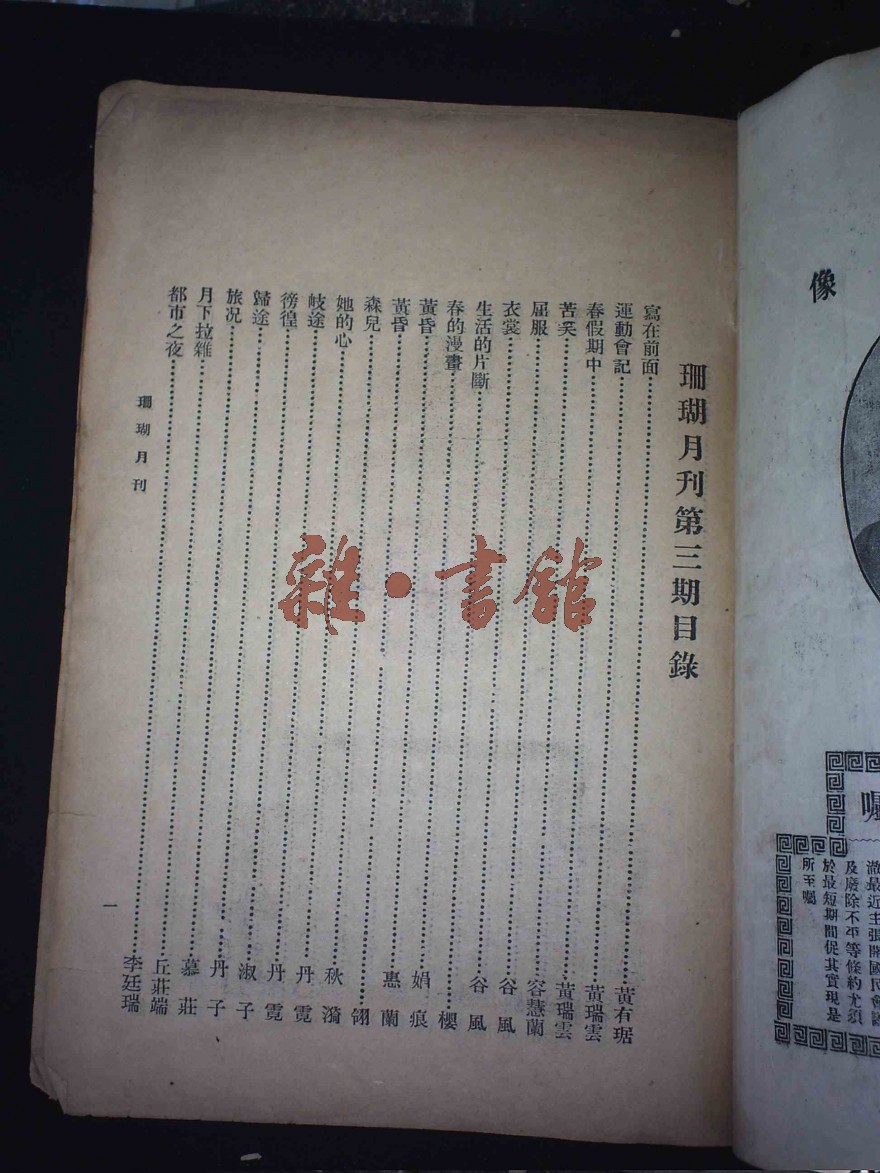 珊瑚月刊第三期目錄
寫在前面……黃有琚
運動會記……黃瑞雲
春假期中……黃瑞雲
苦奚……容慧蘭
屈服……谷風
衣裳……谷風
生活的片斷……櫻
春的漫畫……娟痕
黃昏……惠蘭
黃昏……翎
森兒……秋漪
她的心……丹霓
岐途……丹霓
徬徨……淑子
歸途……丹子
旅况……慕莊
月下拉雜……丘莊端
都市之夜……李廷瑞
珊瑚月刊
一
雜·書館
像
囑
最近主張開國民會議
及廢除不平等條約尤須
於最短期間促其實現是
所至囑